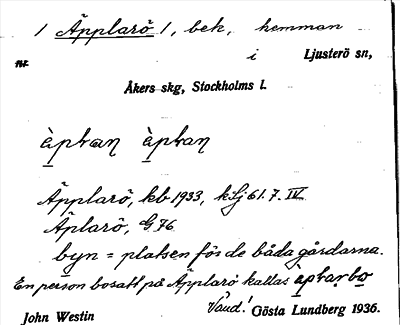 1 Äpplarö 1, bek, hemman
i Ljusterö sn,
Åkers skg, Stockholms l.
Äpplarö, kb 1933, 61.7. IV
Äplarö, G 76
byn = platsen för de båda gårdarna.
En person bosatt på Äpplarö kallas
Vänd!
John Westin Gösta Lundberg 1936.